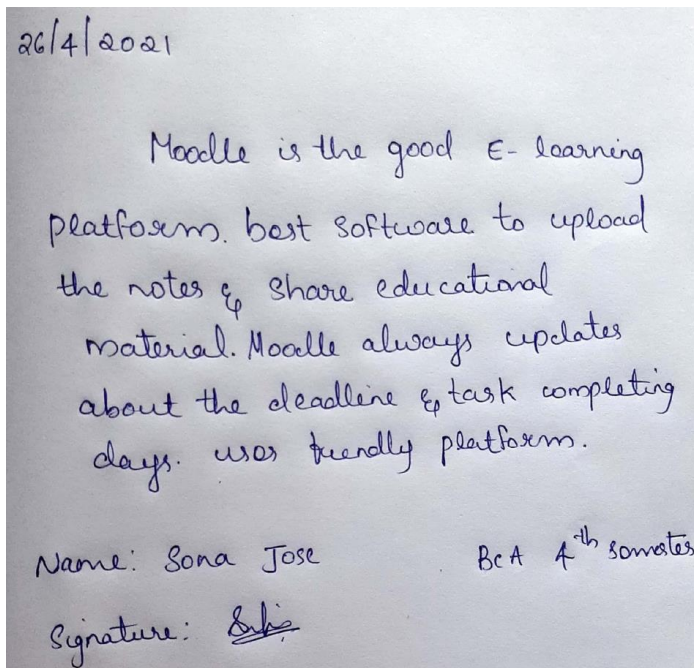 26/4/2021
Moodle is the good E-learning
platform. best software to upload
the notes & share educational
material. Moodle always updates
about the deadline & task completing
days. user friendly platform.
Name: Sona Jose BCA 4th semester
Signature: